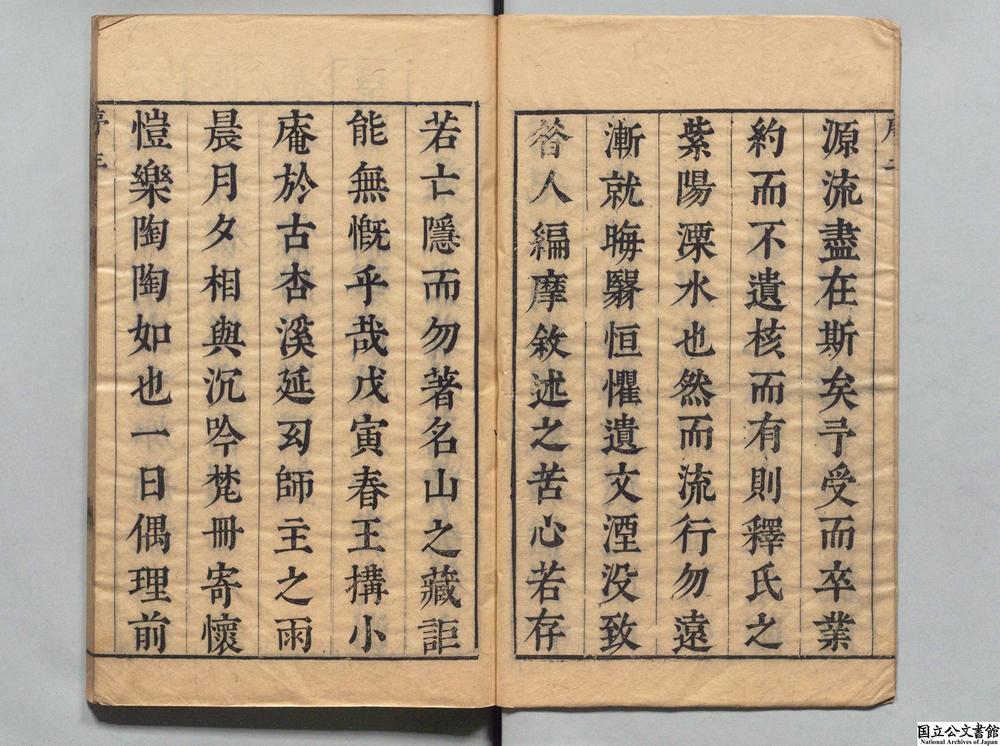 源流盡在斯矣予受而卒業
約而不遺核而有則釋氏之
紫陽溧水也然而流行勿遠
漸就晦翳恒懼遺文湮没致
昝人編摩敘述之苦心若存
若亡隱而勿著名山之藏詎
能無慨乎哉戊寅春王搆小
庵於古杏溪延㓜師主之雨
晨月夕相與沉吟梵冊寄懷
愷樂陶陶如也一日偶理前
序二
序三
国立公文書館
National Archives of Japan